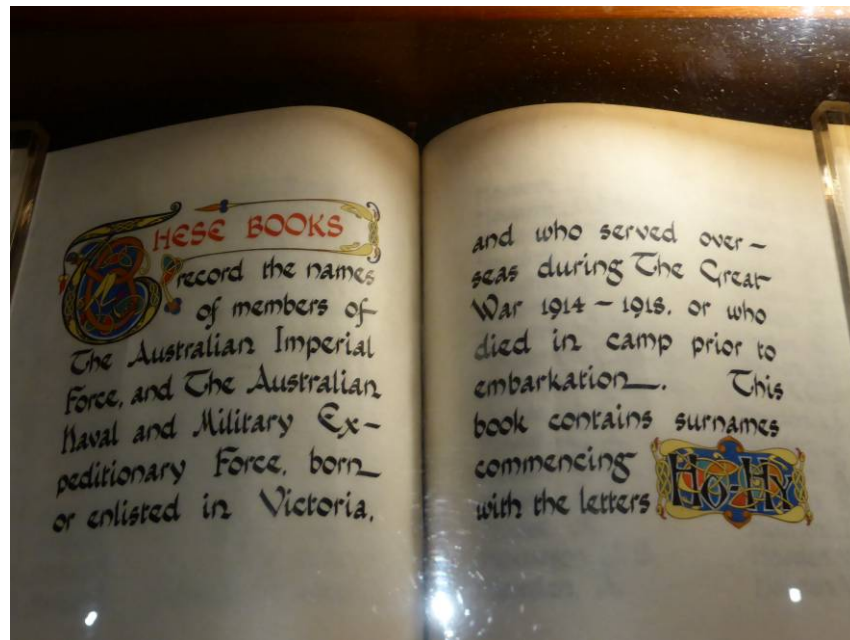 THESE BOOKS
record the names
of members of
The Australian Imperial
Force, and The Australian
Naval and Military Ex-
peditionary Force, born
or enlisted in Victoria,
and who served over-
seas during The Great
War 1914-1918, or who
died in camp prior to
embarkation. This
book contains surnames
commencing
with the letters Ho-Hy